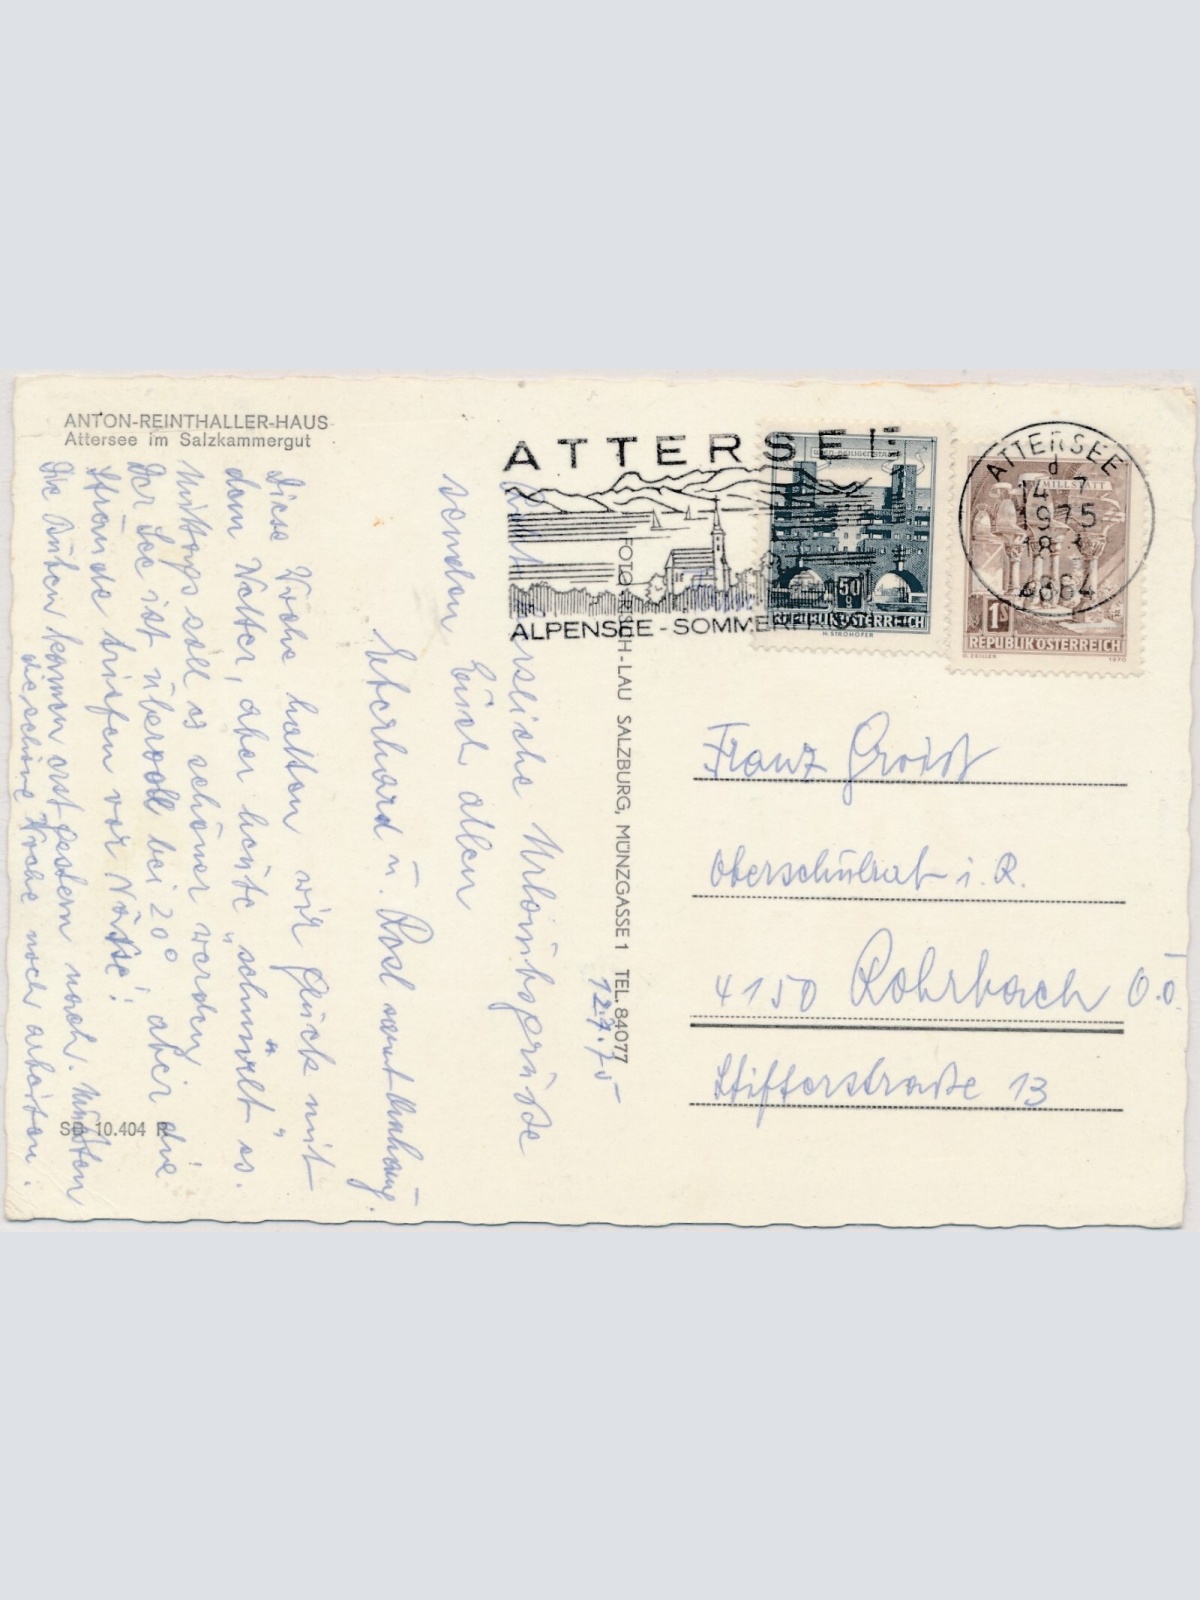 ANTON-REINTHALLER-HAUS
Attersee im Salzkammergut
ATTERSEE
ALPENSEE - SOMMERFRISCHE
WIEN-HEILIGENSTADT
50 g
REPUBLIK ÖSTERREICH
H. STROHOFER
MILLSTATT
1 S
REPUBLIK ÖSTERREICH
1970
ATTERSEE
d
14.-7.
1975
18
4864
12.7.75
Urlaubsgrüße
senden Euch allen
Eberhard u. samt Anhang.
Diese Woche hatten wir Glück mit
dem Wetter, aber heute "schnürlt" es.
Mittags soll es schöner werden
Der See ist überall bei 20° aber die
Strände triefen vor Nässe!
Die Guten kommen erst gestern nach. Mußten
die schöne Woche noch arbeiten.
SB 10.404 R
LAU SALZBURG, MÜNZGASSE 1 TEL. 84077
Franz
Oberschulrat i. R.
4150 Rohrbach O.Ö.
Stifterstraße 13